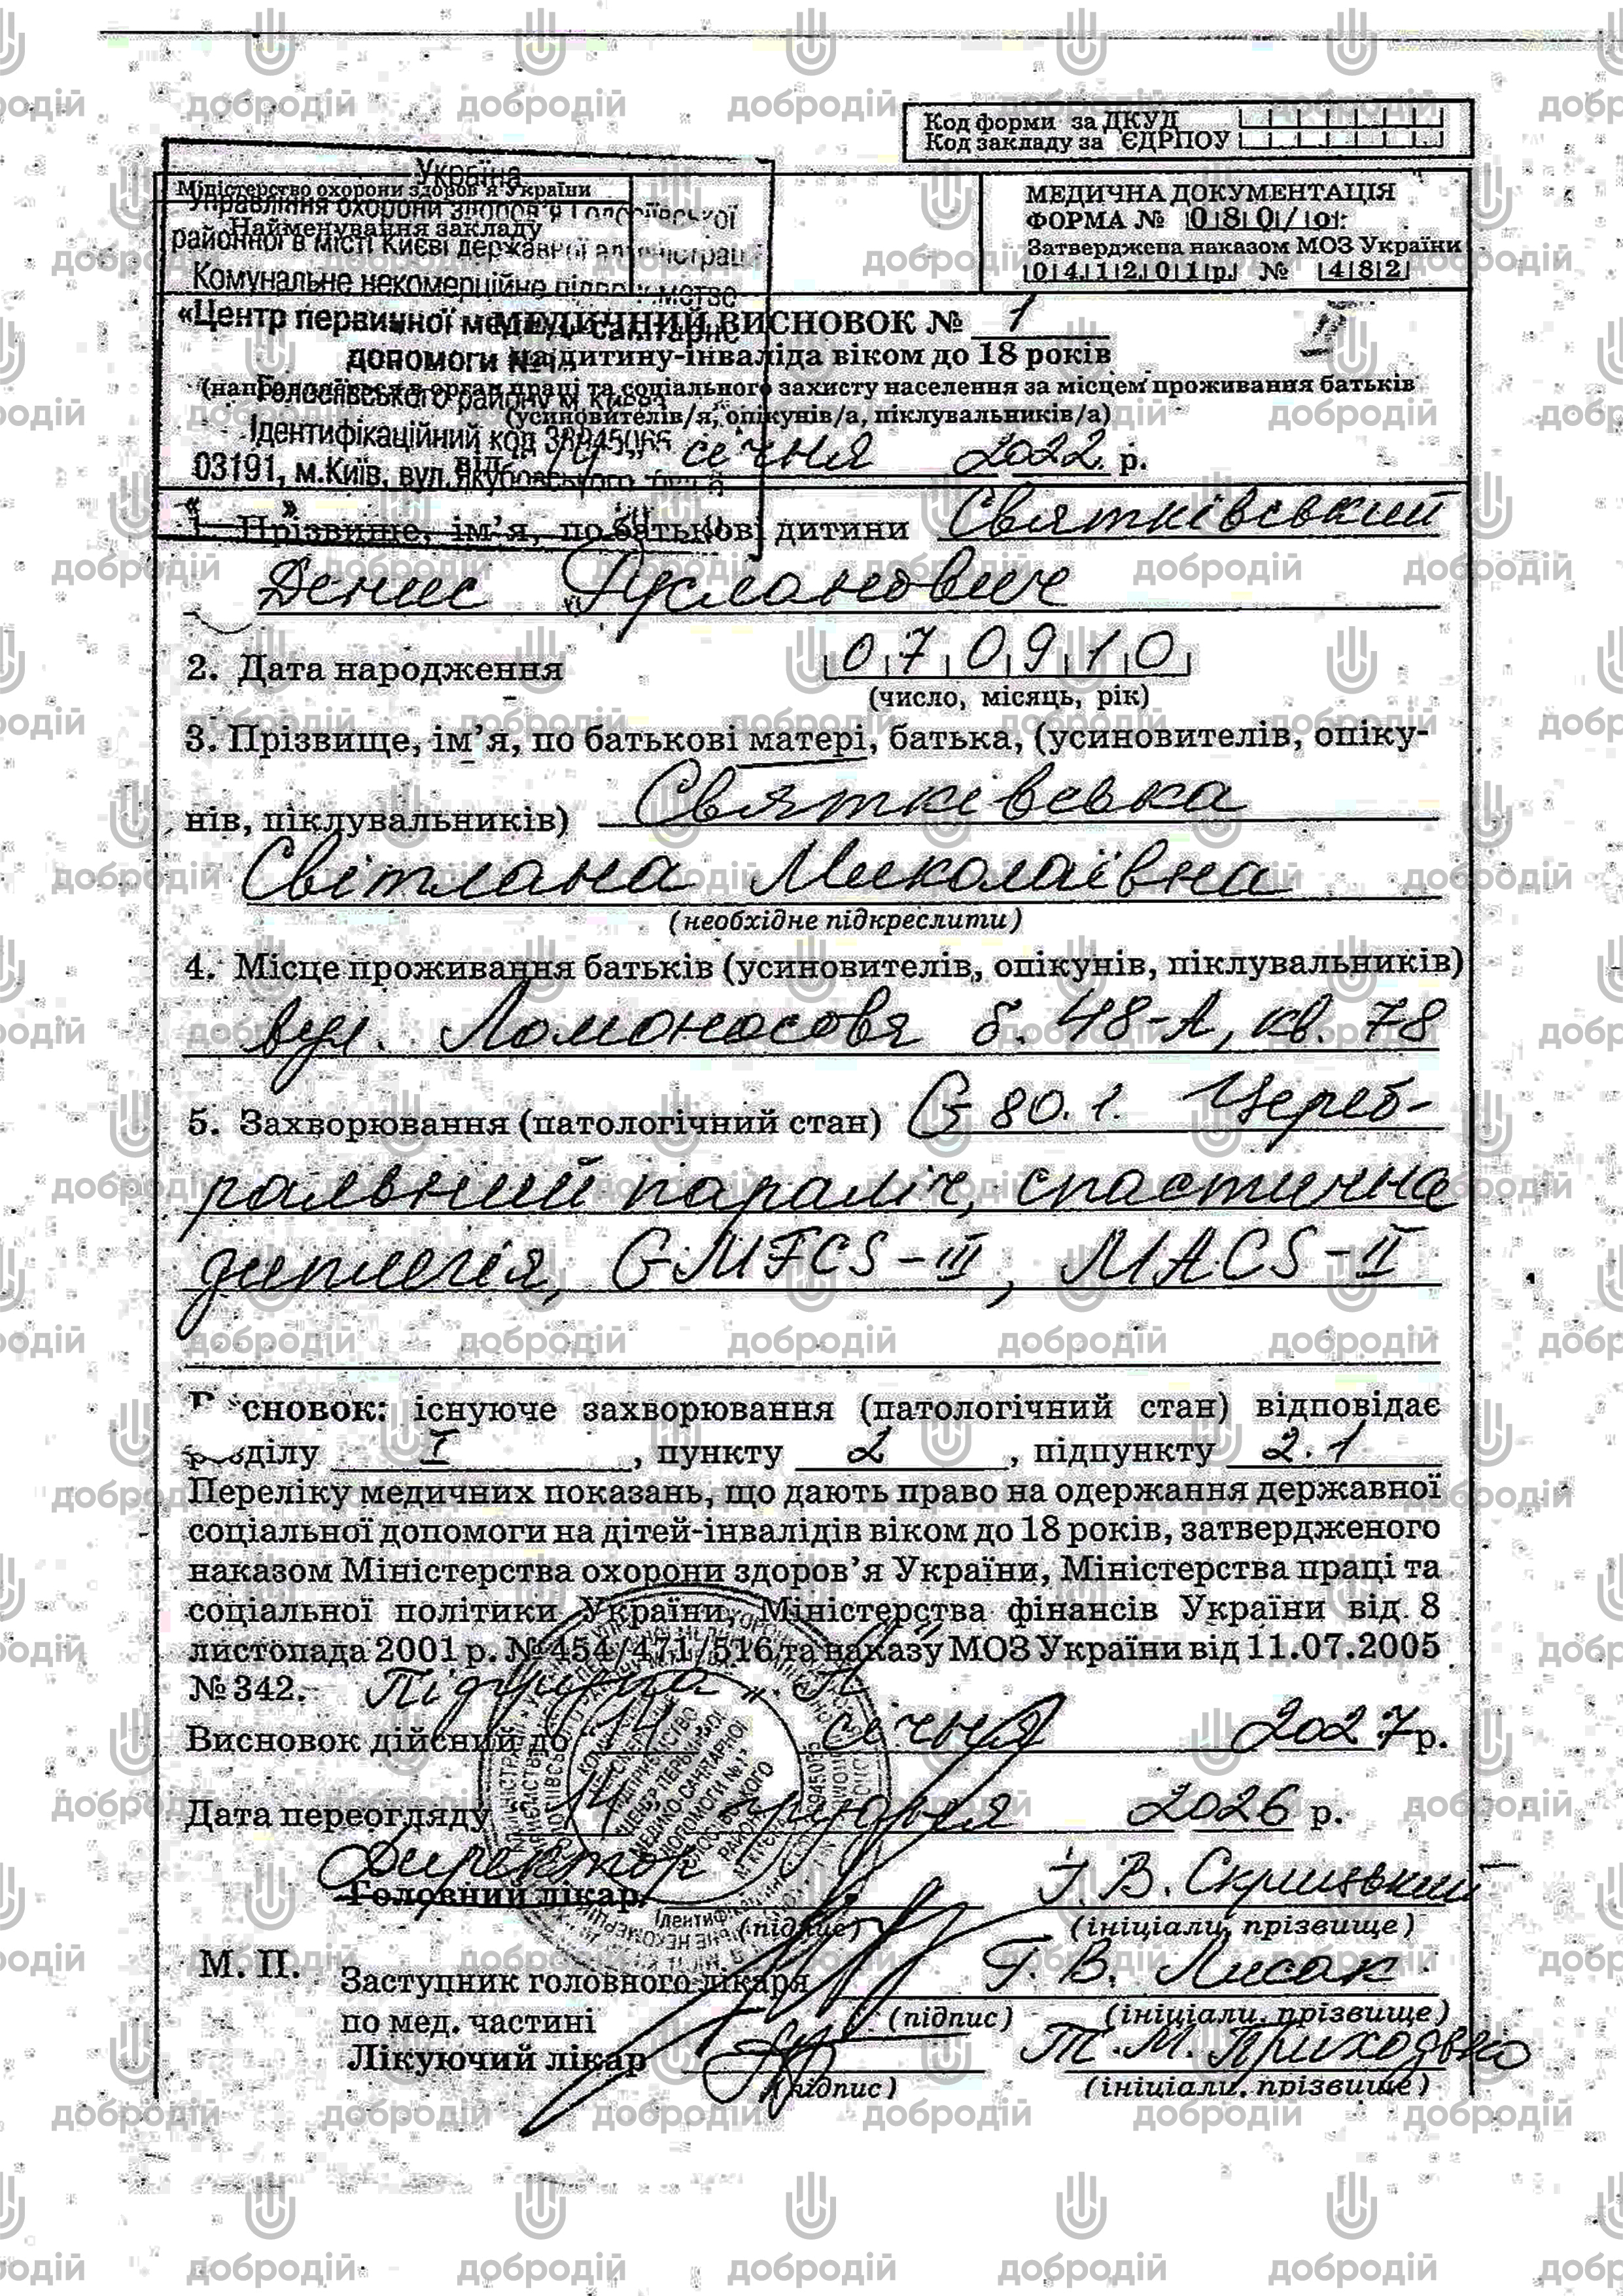 Код форми за ДКУД
Код закладу за ЄДРПОУ
Україна
Міністерство охорони здоров'я України
Управління охорони здоров'я Голосіївської
Найменування закладу
районної в місті Києві державної адміністрац
Комунальне некомерційне підприємство
«Центр первинної медико-санітарно
допомоги №1»
Голосіївського району м. Києва
Ідентифікаційний код 38945065
03191, м.Київ, вул.Якубовського
МЕДИЧНА ДОКУМЕНТАЦІЯ
ФОРМА № 080/о
Затверджена наказом МОЗ України
041201р. № 482
МЕДИЧНИЙ ВИСНОВОК № 1
на дитину-інваліда віком до 18 років
(направляється в орган праці та соціального захисту населення за місцем проживання батьків
(усиновителів/я, опікунів/а, піклувальників/а)
від 14 січня 2022 р.
1. Прізвище, ім'я, по батькові дитини Святківський
Денис Русланович
2. Дата народження 070910
(число, місяць, рік)
3. Прізвище, ім'я, по батькові матері, батька, (усиновителів, опіку-
нів, піклувальників) Святківська
Світлана Миколаївна
(необхідне підкреслити)
4. Місце проживання батьків (усиновителів, опікунів, піклувальників)
вул. Ломоносова б. 48-А, кв. 78
5. Захворювання (патологічний стан) G 80.1. Цереб-
ральний параліч, спастична
диплегія, GMFCS-III, MACS-II
Висновок: існуюче захворювання (патологічний стан) відповідає
розділу I, пункту 2, підпункту 2.1
Переліку медичних показань, що дають право на одержання державної
соціальної допомоги на дітей-інвалідів віком до 18 років, затвердженого
наказом Міністерства охорони здоров'я України, Міністерства праці та
соціальної політики України, Міністерства фінансів України від 8
листопада 2001 р. № 454/471/516 та наказу МОЗ України від 11.07.2005
№ 342. Підгрупа „А"
Висновок дійсний до „14 січня 2027 р.
Дата переогляду 14 грудня 2026 р.
Директор
Головний лікар Т.В. Скрицький
(підпис) (ініціали, прізвище)
М. П. Заступник головного лікаря Т. В. Лисак
по мед. частині (підпис) (ініціали, прізвище)
Лікуючий лікар Т.М. Приходько
(підпис) (ініціали, прізвище)
КОМУНАЛЬНЕ
НЕКОМЕРЦІЙНЕ
ПІДПРИЄМСТВО
«ЦЕНТР ПЕРВИННОЇ
МЕДИКО-САНІТАРНОЇ
ДОПОМОГИ №1»
ГОЛОСІЇВСЬКОГО
РАЙОНУ
М. КИЄВА
добродій